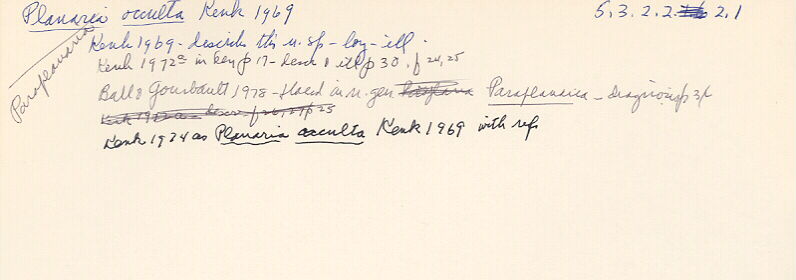 Planaria occulta Kenk 1969 5.3.2.2. 2.1
Paraplanaria
Kenk 1969 - describes this n. sp - loy - ill.
Kenk 1972a in key p 17 - descr & ill p 30. f 24,25
Ball & Gourbault 1978 - placed in n. gen Paraplanaria - diagnosis p
Kenk 1972a - descr f 26, 27 p 25
Kenk 1974 as Planaria occulta Kenk 1969 with refs